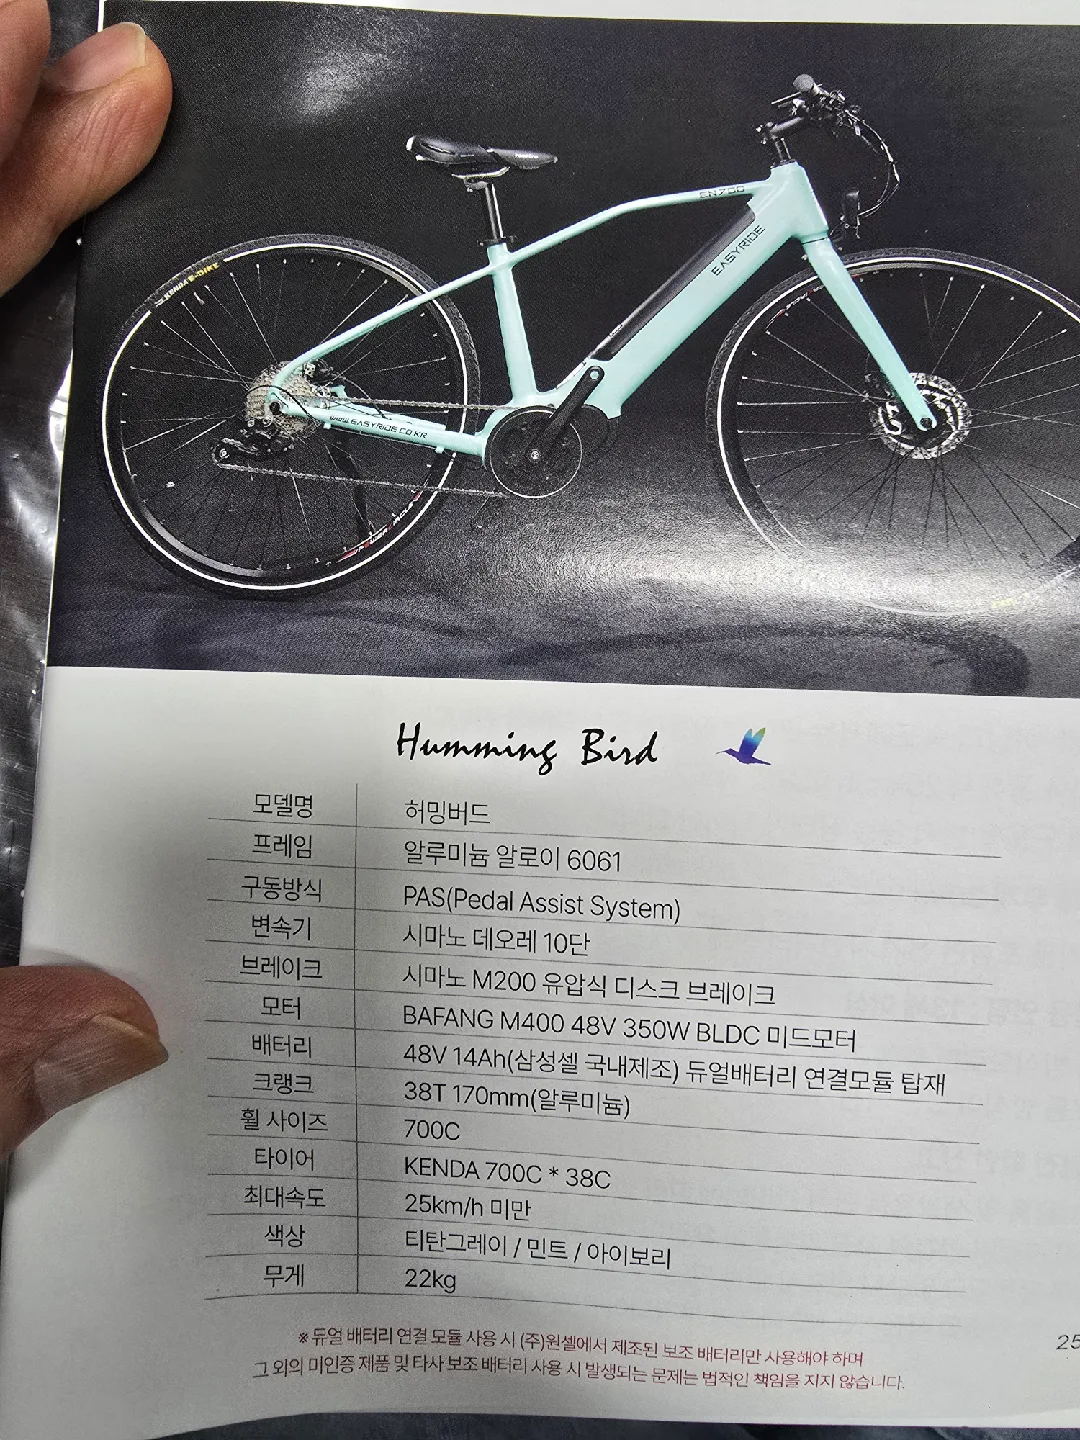 EN700
EASYRIDE
KENDA E-BIKE
WWW.EASYRIDE.CO.KR
Humming Bird
모델명 허밍버드
프레임 알루미늄 알로이 6061
구동방식 PAS(Pedal Assist System)
변속기 시마노 데오레 10단
브레이크 시마노 M200 유압식 디스크 브레이크
모터 BAFANG M400 48V 350W BLDC 미드모터
배터리 48V 14Ah(삼성셀 국내제조) 듀얼배터리 연결모듈 탑재
크랭크 38T 170mm(알루미늄)
휠 사이즈 700C
타이어 KENDA 700C * 38C
최대속도 25km/h 미만
색상 티탄그레이 / 민트 / 아이보리
무게 22kg
※ 듀얼 배터리 연결 모듈 사용 시 (주)원셀에서 제조된 보조 배터리만 사용해야 하며
그 외의 미인증 제품 및 타사 보조 배터리 사용 시 발생되는 문제는 법적인 책임을 지지 않습니다.
25